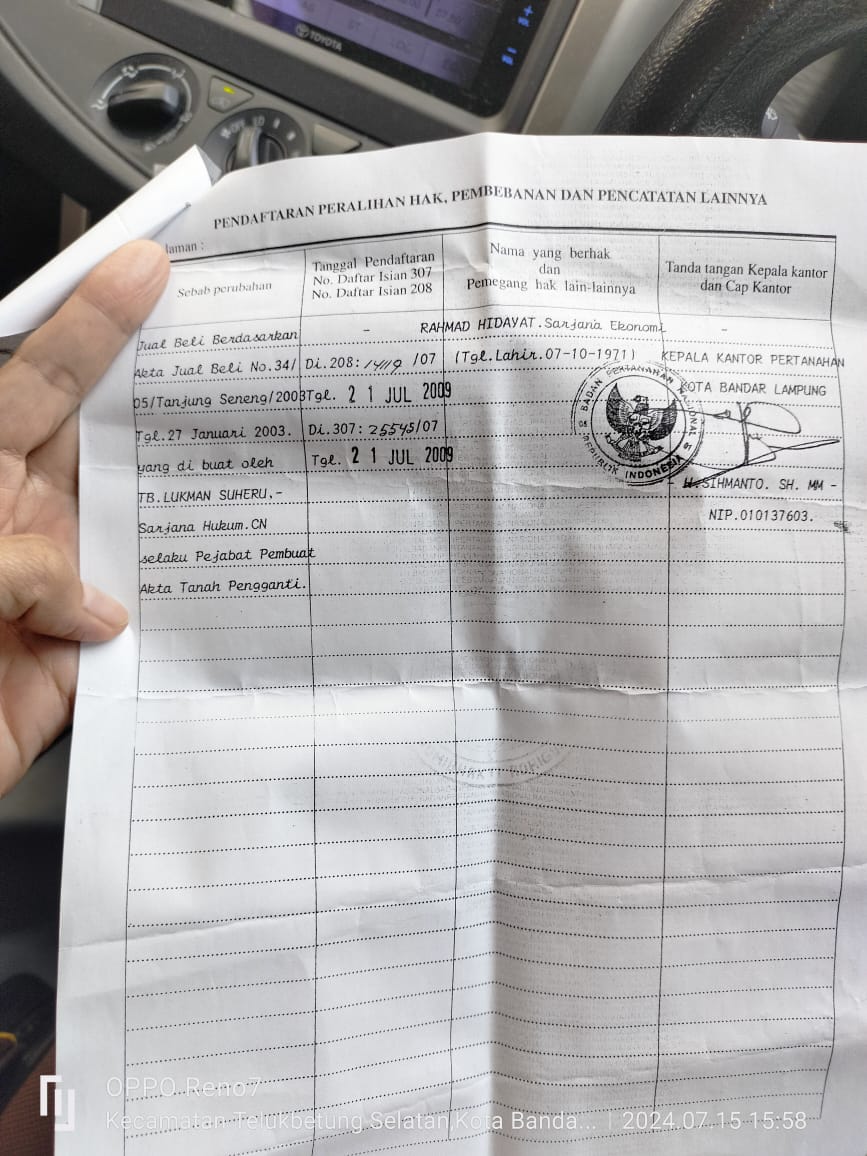 TOYOTA
PENDAFTARAN PERALIHAN HAK, PEMBEBANAN DAN PENCATATAN LAINNYA
laman :
Sebab perubahan
Tanggal Pendaftaran
No. Daftar Isian 307
No. Daftar Isian 208
Nama yang berhak
dan
Pemegang hak lain-lainnya
Tanda tangan Kepala kantor
dan Cap Kantor
Jual Beli Berdasarkan
Akta Jual Beli No.34/
05/Tanjung Seneng/2003
Tgl.27 Januari 2003.
yang di buat oleh
TB.LUKMAN SUHERU.-
Sarjana Hukum.CN
selaku Pejabat Pembuat
Akta Tanah Pengganti.
-
Di.208: /07
Tgl. 21 JUL 2009
Di.307: 25545/07
Tgl. 21 JUL 2009
RAHMAD HIDAYAT.Sarjana Ekonomi
(Tgl.Lahir.07-10-1971)
-
KEPALA KANTOR PERTANAHAN
KOTA BANDAR LAMPUNG
BADAN PERTANAHAN NASIONAL
REPUBLIK INDONESIA
H.SIHMANTO. SH. MM -
NIP.010137603.
OPPO Reno7
Kecamatan Telukbetung Selatan,Kota Banda... | 2024.07.15 15:58